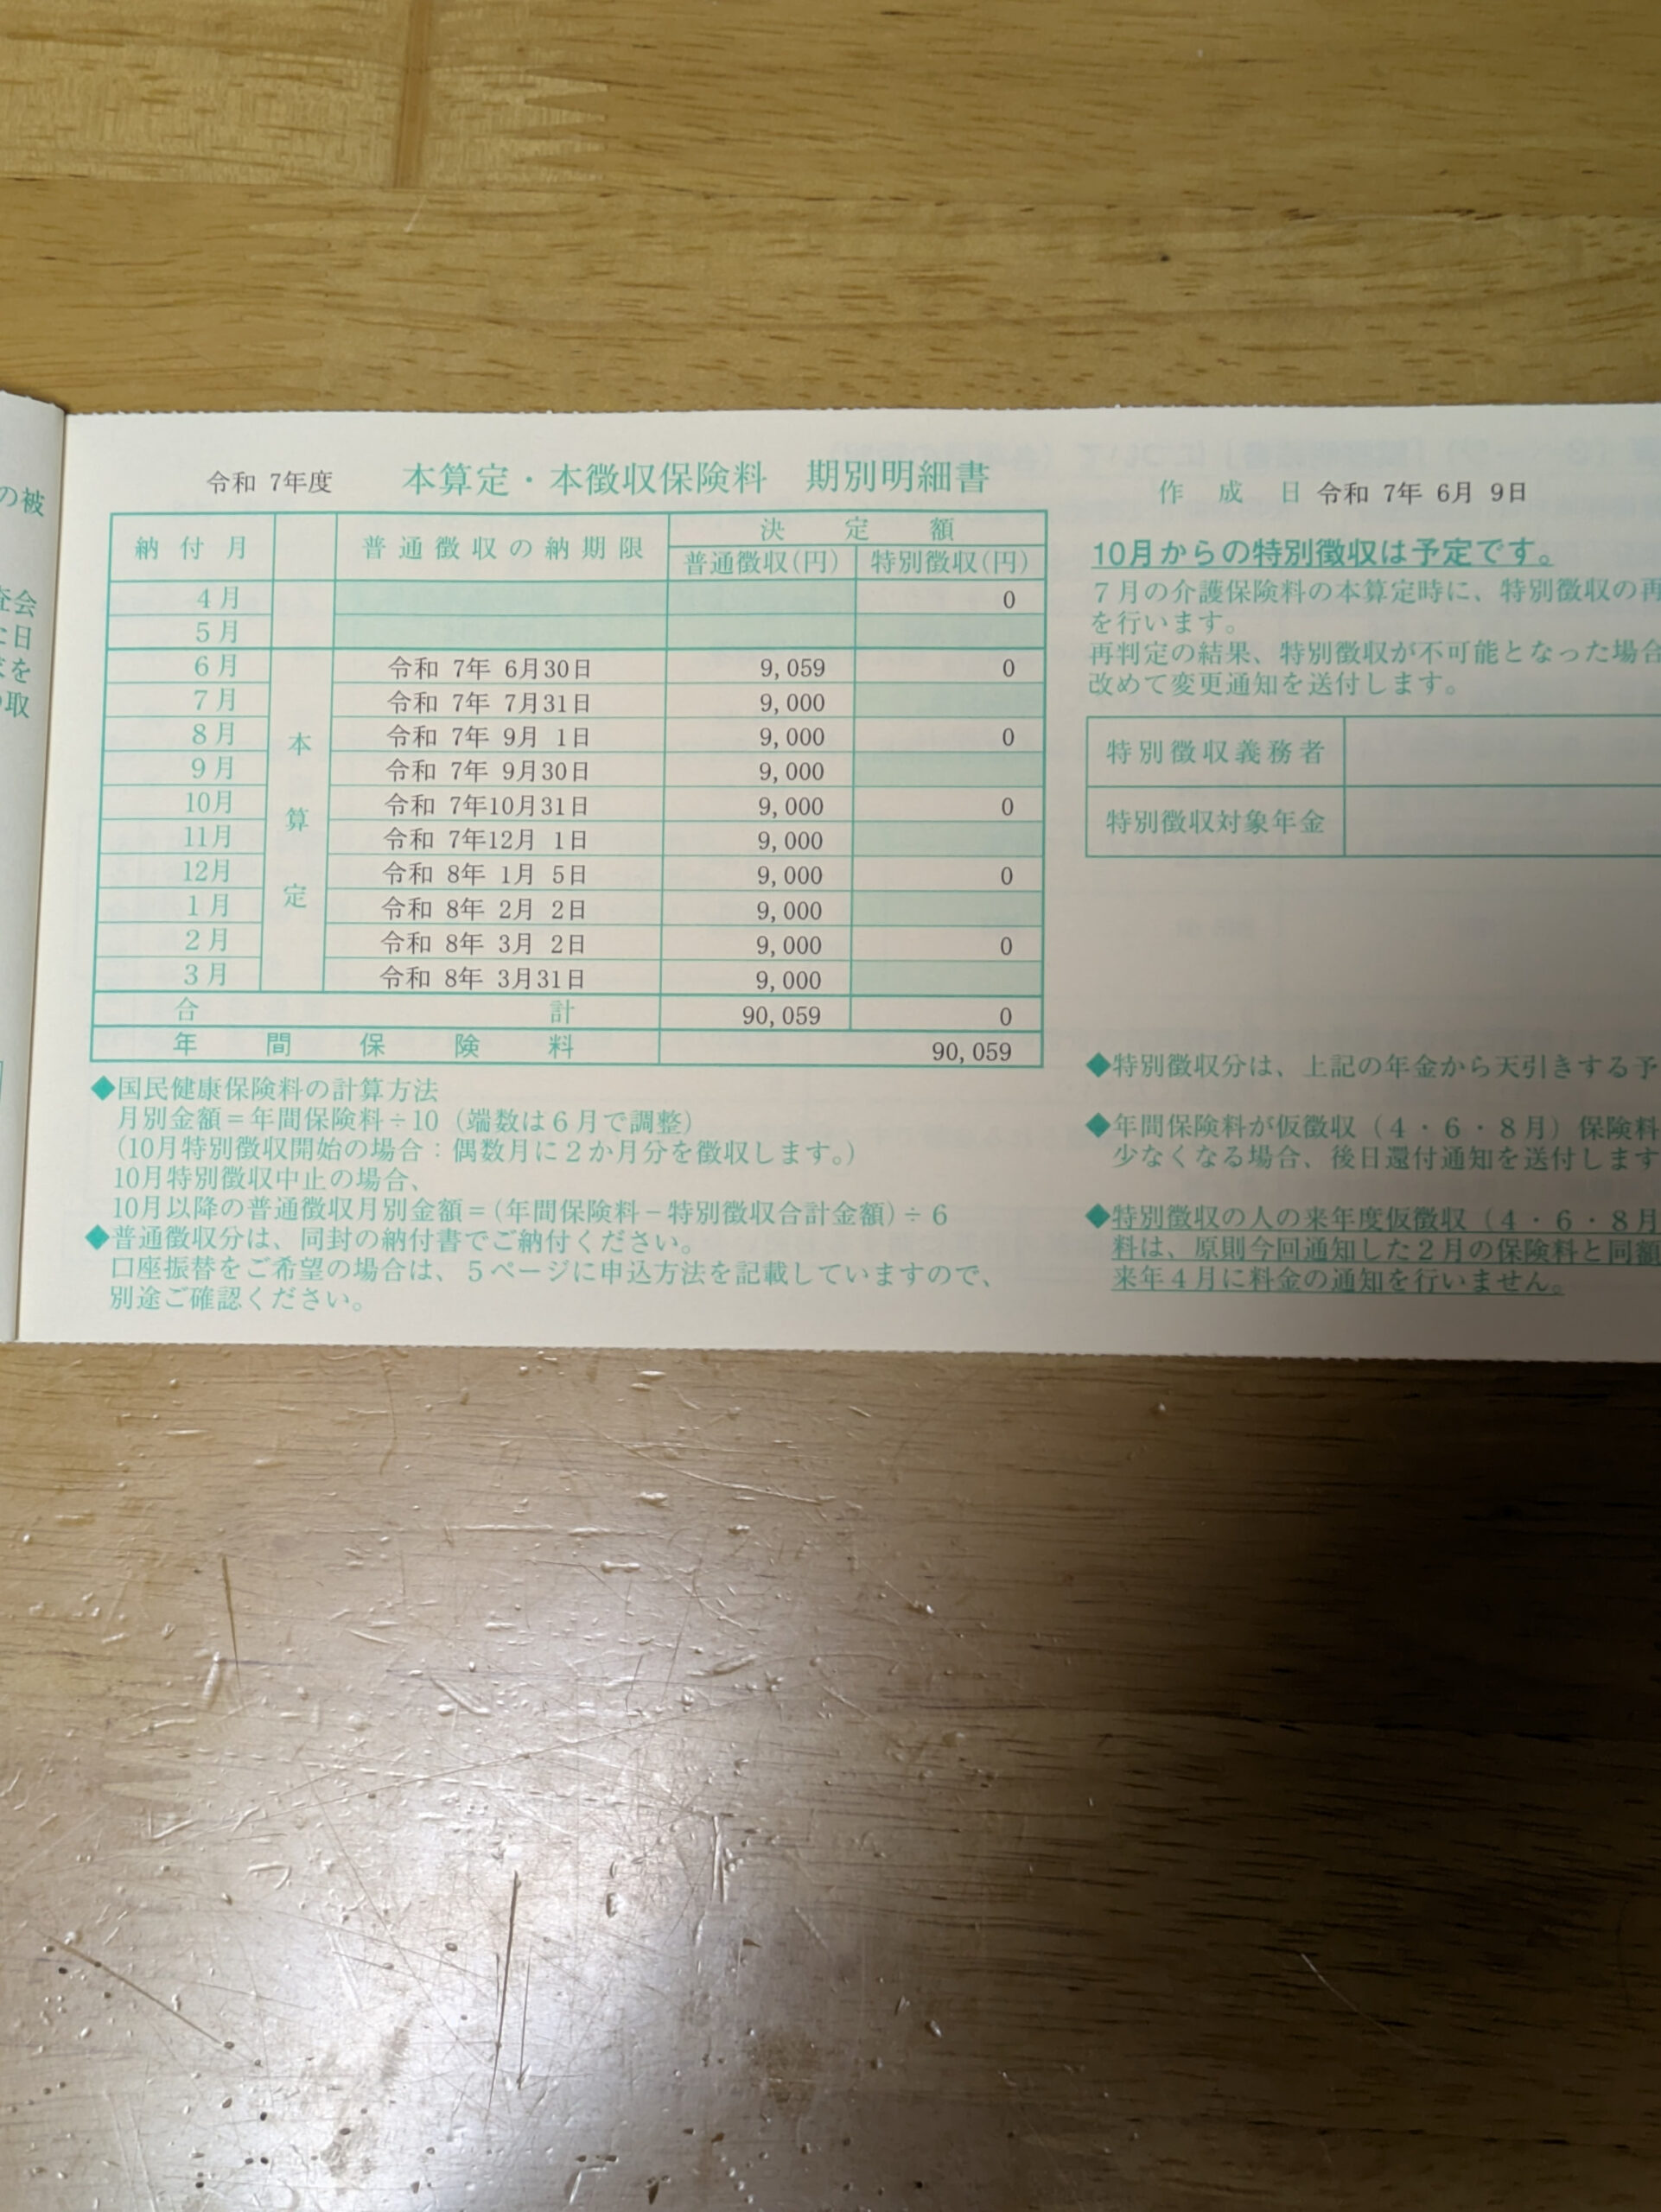 の被
査会
に日
求を
の取
令和 7年度 本算定・本徴収保険料 期別明細書
作成日 令和 7年 6月 9日
納付月 普通徴収の納期限 決定額
普通徴収(円) 特別徴収(円)
4月 0
5月
6月 令和 7年 6月30日 9,059 0
7月 令和 7年 7月31日 9,000
8月 令和 7年 9月 1日 9,000 0
9月 令和 7年 9月30日 9,000
10月 令和 7年10月31日 9,000 0
11月 令和 7年12月 1日 9,000
12月 令和 8年 1月 5日 9,000 0
1月 令和 8年 2月 2日 9,000
2月 令和 8年 3月 2日 9,000 0
3月 令和 8年 3月31日 9,000
本算定
合計 90,059 0
年間保険料 90,059
◆国民健康保険料の計算方法
月別金額＝年間保険料÷10（端数は6月で調整）
(10月特別徴収開始の場合：偶数月に2か月分を徴収します。)
10月特別徴収中止の場合、
10月以降の普通徴収月別金額＝(年間保険料－特別徴収合計金額)÷6
◆普通徴収分は、同封の納付書でご納付ください。
口座振替をご希望の場合は、5ページに申込方法を記載していますので、
別途ご確認ください。
10月からの特別徴収は予定です。
7月の介護保険料の本算定時に、特別徴収の再
を行います。
再判定の結果、特別徴収が不可能となった場合
改めて変更通知を送付します。
特別徴収義務者
特別徴収対象年金
◆特別徴収分は、上記の年金から天引きする予
◆年間保険料が仮徴収（4・6・8月）保険料
少なくなる場合、後日還付通知を送付します
◆特別徴収の人の来年度仮徴収（4・6・8月
料は、原則今回通知した2月の保険料と同額
来年4月に料金の通知を行いません。